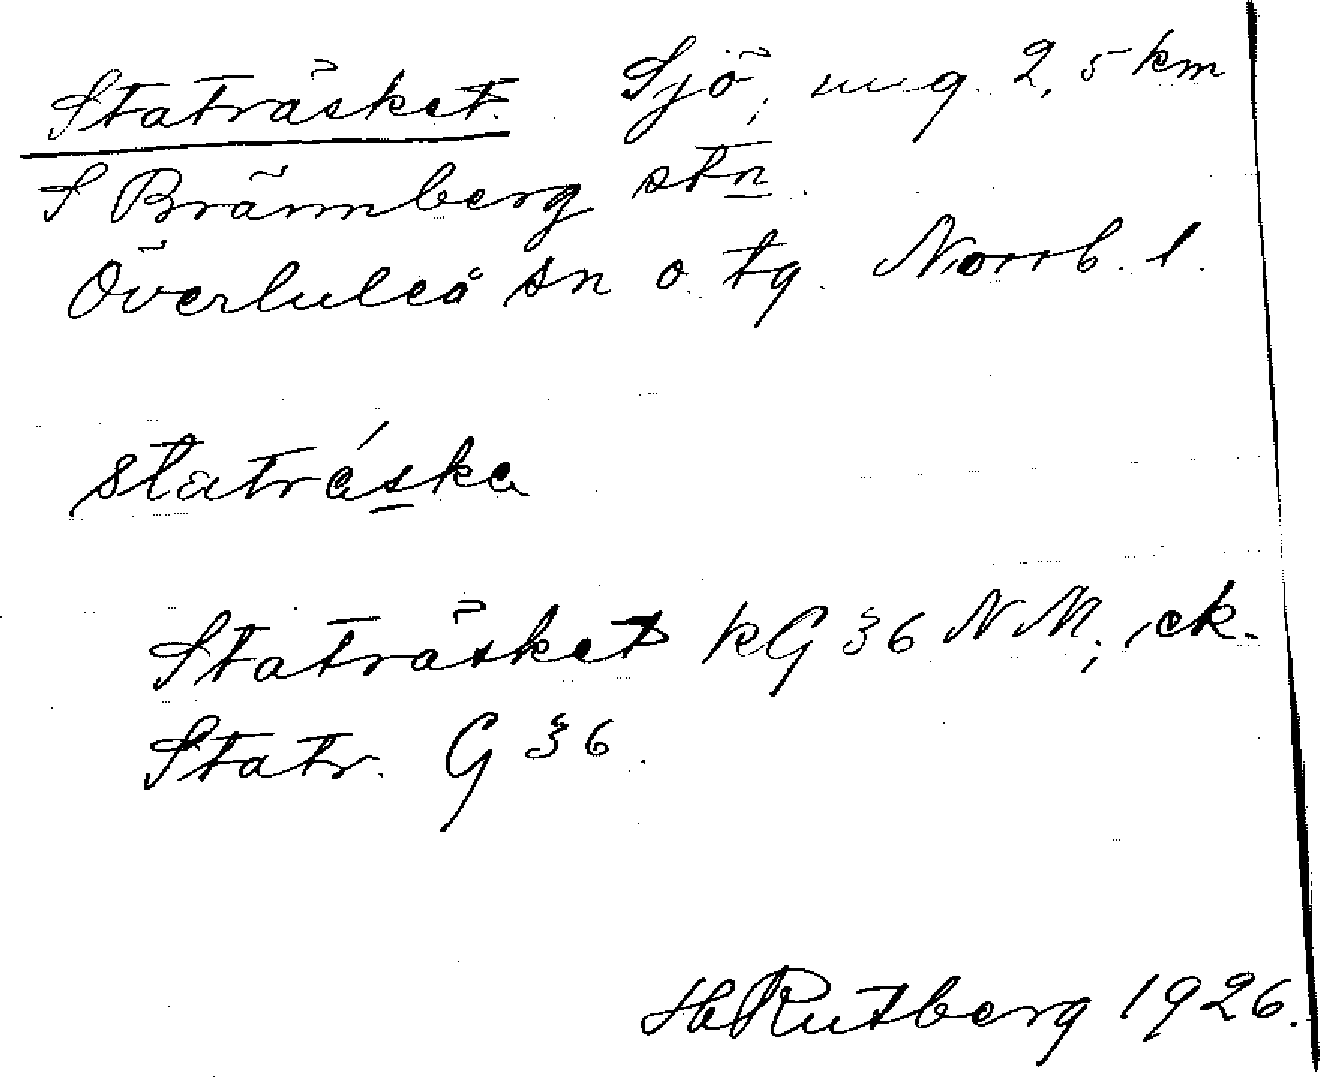 Staträsket. Sjö, ung. 2,5 km
S Brännberg stn.
Överluleå sn o. tg. Norrb. l.
statráska
Staträsket kG 36 NM; ek.
Statr. G 36.
H Rutberg 1926.